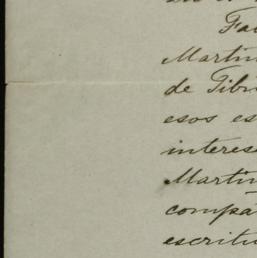 Fa
Martín
de Tib
esos es
interes
Martín
compa
escritu